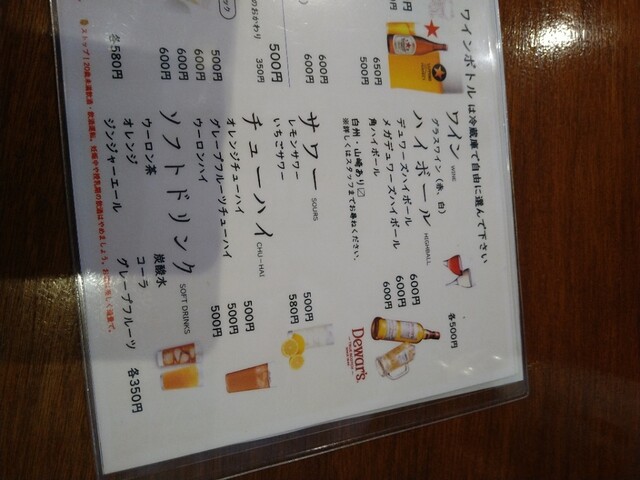 ワインボトルは冷蔵庫で自由に選んで下さい
ワイン WINE
グラスワイン（赤、白） 各500円
ハイボール HIGHBALL
デュワーズハイボール 600円
メガデュワーズハイボール 600円
角ハイボール 600円
白州・山崎あり〼
※詳しくはスタッフまでお尋ねください。
Dewar's
サワー SOURS
レモンサワー 500円
いちごサワー 580円
チューハイ CHU-HAI
オレンジチューハイ 500円
グレープフルーツチューハイ 500円
ウーロンハイ 500円
ソフトドリンク SOFT DRINKS
ウーロン茶 炭酸水
オレンジ コーラ
ジンジャーエール グレープフルーツ 各350円
650円
500円
600円
600円
500円
のおかわり 350円
500円
600円
600円
600円
各580円
ストップ！20歳未満飲酒・飲酒運転。妊娠中や授乳期の飲酒はやめましょう。お酒は楽しく適量で。